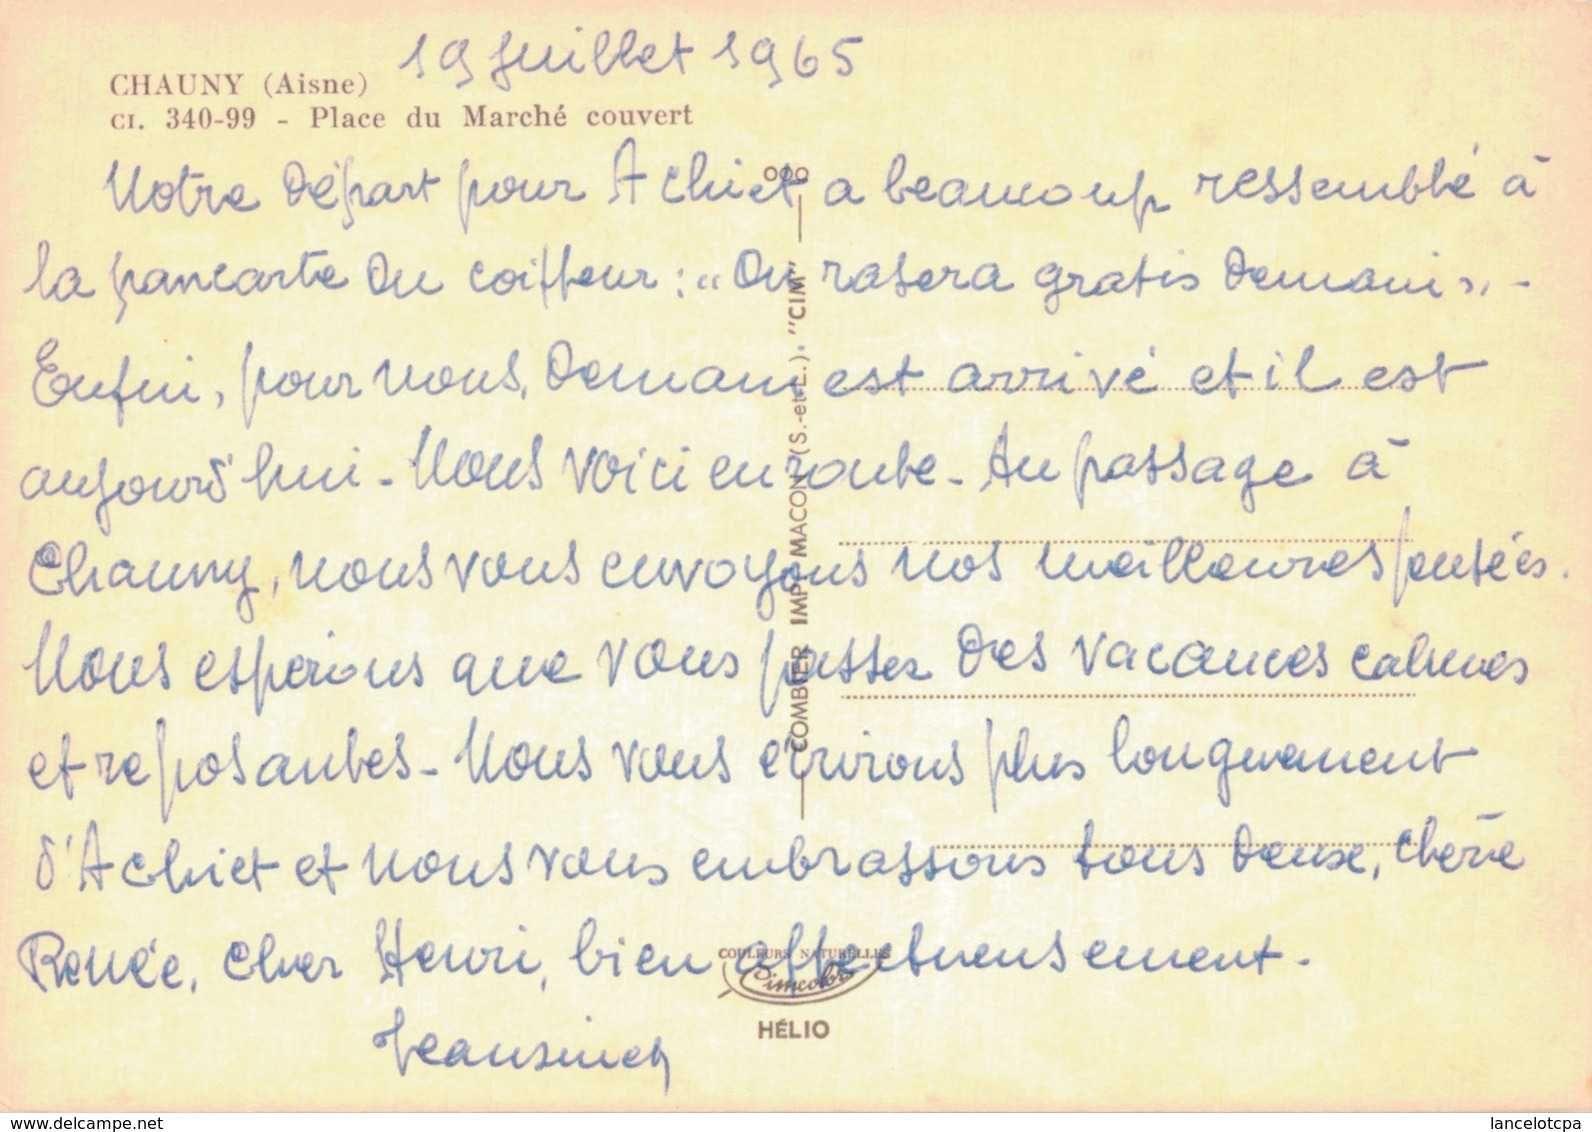 19 Juillet 1965
CHAUNY (Aisne)
CI. 340-99 - Place du Marché couvert
Notre départ pour Achiet a beaucoup ressemblé à
la pancarte du coiffeur : "On rasera gratis demain". -
Enfin, pour nous, demain est arrivé et il est
aujourd'hui - Nous voici en route - Au passage à
Chauny, nous vous envoyons nos meilleures pensées.
Nous espérons que vous passez des vacances calmes
et reposantes - Nous vous écrirons plus longuement
d'Achiet et nous vous embrassons tous deux, chère
Renée, cher Henri, bien affectueusement.
COMBIER IMP. MACON (S.-et-L.). "CIM"
COULEURS NATURELLES
Cimcolor
HÉLIO
Delcampe.net
lancelotcpa